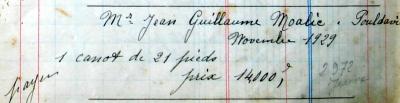 Mr Jean Guillaume Moalic. Pouldavid
Novembre 1929
1 canot de 21 pieds
payer prix 14000,
2972